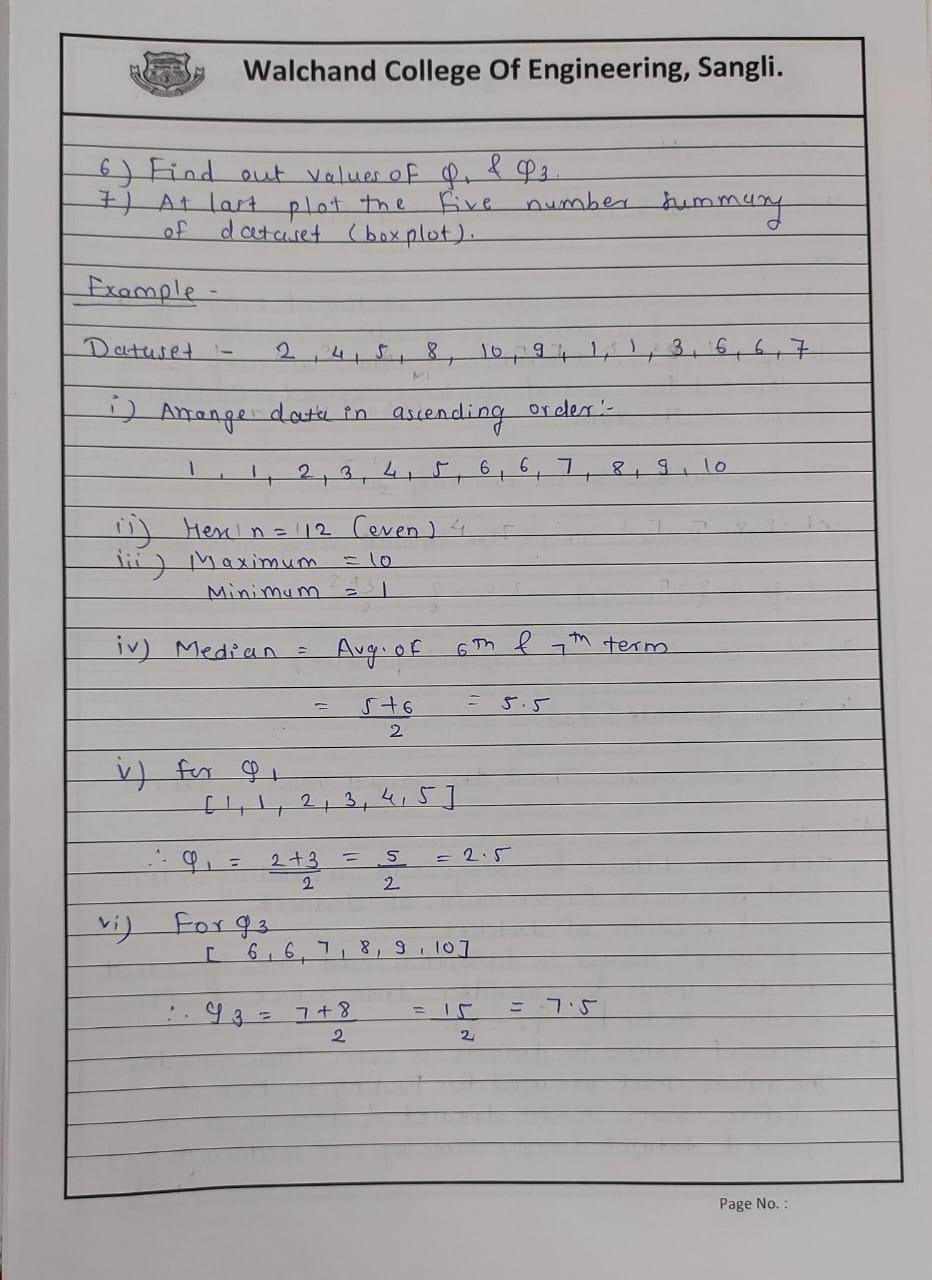 Walchand College Of Engineering, Sangli.
6) Find out values of φ1 & φ3.
7) At last plot the five number summary
of dataset (boxplot).
Example -
Dataset :- 2, 4, 5, 8, 10, 9, 1, 1, 3, 6, 6, 7
i) Arrange data in ascending order:-
1, 1, 2, 3, 4, 5, 6, 6, 7, 8, 9, 10
ii) Here n = 12 (even)
iii) Maximum = 10
Minimum = 1
iv) Median = Avg. of 6th & 7th term
= 5+6/2 = 5.5
v) for φ1
[1, 1, 2, 3, 4, 5]
∴ φ1 = 2+3/2 = 5/2 = 2.5
vi) For φ3
[6, 6, 7, 8, 9, 10]
∴ φ3 = 7+8/2 = 15/2 = 7.5
Page No. :